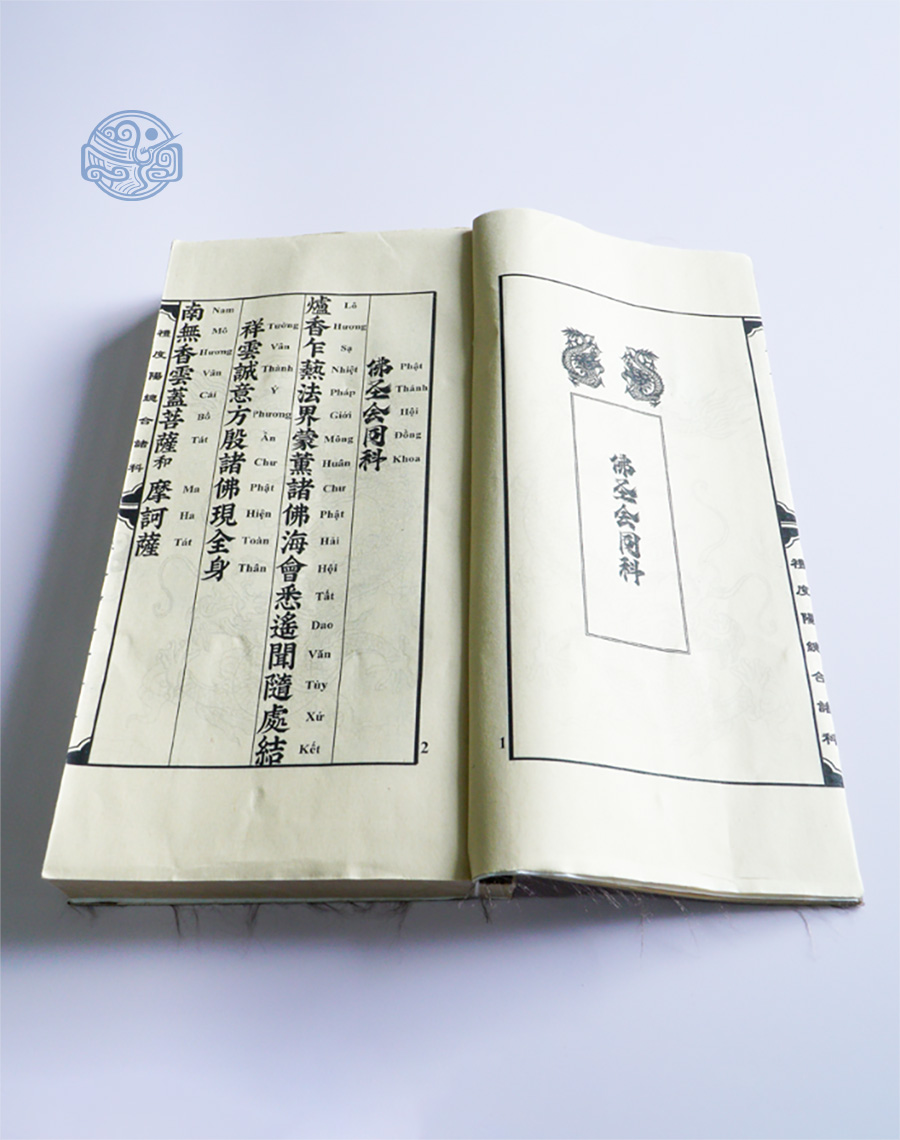 禮度陽總合諸科
佛圣会同科
1
佛圣会同科
Phật Thánh Hội Đồng Khoa
爐香乍爇法界蒙薰諸佛海會悉遙聞隨處結
Lô Hương Sạ Nhiệt Pháp Giới Mông Huân Chư Phật Hải Hội Tất Dao Văn Tùy Xứ Kết
祥雲誠意方殷諸佛現全身
Tường Vân Thành Ý Phương Ân Chư Phật Hiện Toàn Thân
南無香雲蓋菩薩和摩訶薩
Nam Mô Hương Vân Cái Bồ Tát Ma Ha Tát
禮度陽總合諸科
2